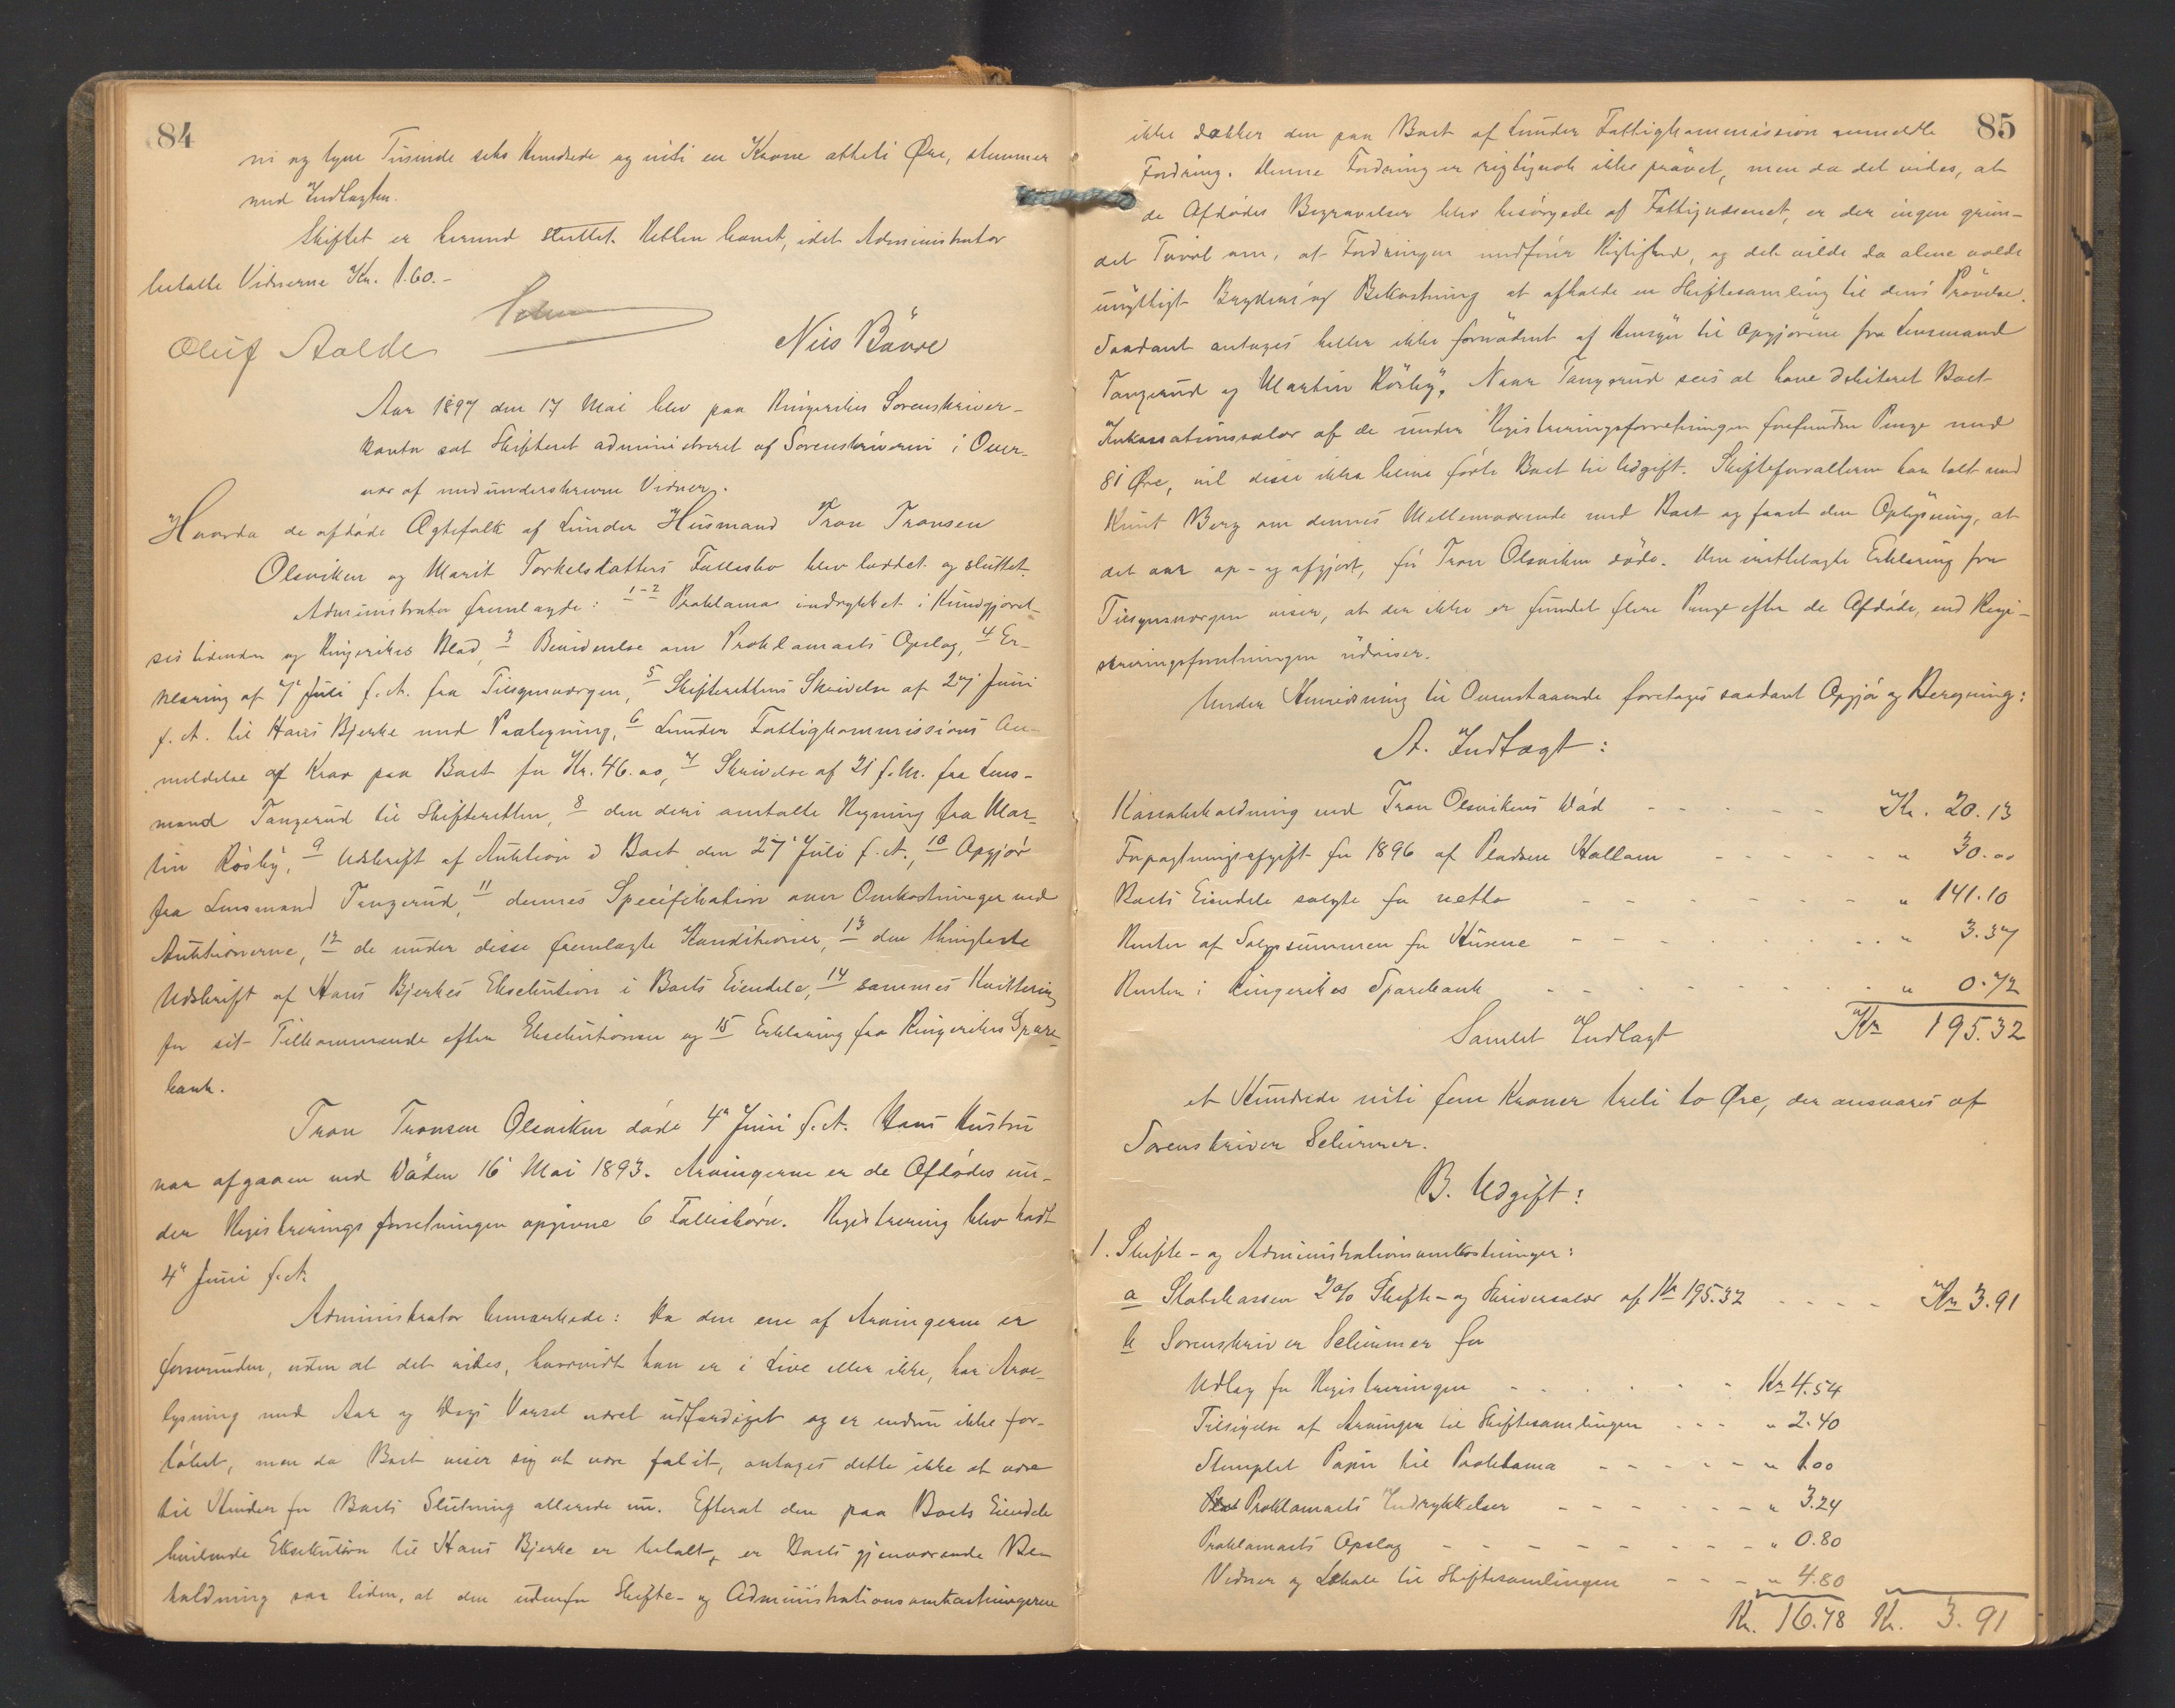 84
ni og tyve Tusinde seks Hundrede og niti en Krone otteti Øre, stemmer
med Indtægten.
Skiftet er hermed sluttet. Retten hævet, idet Administrator
betalte Vidnerne Kr. 1.60.-
Oluf Aalde Nils Bävre
Aar 1897 den 17 Mai blev paa Ringerikes Sorenskriver-
kontor sat Skifteret administreret af Sorenskriveren i Over-
vær af medunderskrevne Vidner.
Hvorda de afdøde Ægtefolk af Lunder Husmand Tron Tronsen
Olsviken og Marit Torkelsdatters Fællesbo blev korrdet og sluttet.
Administrator fremlagde: 1-2 Proklamas indrykket i Kundgjørel-
sestidenden og Ringerikes Blad, 3 Bevidnelse om Proklamaets Opslag, 4 Er-
klæring af 7 Juli f. A. fra Tilsynsværgen, 5 Skifterettens Skrivelse af 27 Juni
f. A. til Hans Bjerke med Paategning, 6 Lunder Fattigkommissions An-
meldelse af Krav paa Boet for Kr. 46.00, 7 Skrivelse af 21 f. M. fra Lens-
mand Tangerud til Skifteretten, 8 den deri omtalte Regning fra Mar-
tin Rösby, 9 Udskrift af Auktion i Boet den 27 Juli f. A., 10 Opgjør
fra Lensmand Tangerud, 11 dennes Specifikation over Omkostninger ved
Auktionerne, 12 de under disse fremlagte Konditioner, 13 den thinglæste
Udskrift af Hans Bjerkes Eksekution i Boets Eiendele, 14 sammes Kvittering
for sit Tilkommende efter Eksekutionen og 15 Erklæring fra Ringerikes Spare-
bank.
Tron Tronsen Olsviken døde 4 Juni f. A. Hans Hustru
var afgaaen ved Døden 16 Mai 1893. Arvingerne er de Afdødes un-
der Registreringsforretningen opgivne 6 Fællesbørn. Registrering blev holdt
4 Juni f. A.
Administrator bemærkede: Da den ene af Arvingerne er
forsvunden, uden at det vides, hvorvidt han er i Live eller ikke, har Arve-
lysning med Aar og Dags Varsel været udfærdiget og er endnu ikke for-
løbet, men da Boet viser sig at være fallit, antages dette ikke at være
til Hinder for Boets Slutning allerede nu. Efterat den paa Boets Eiendele
hvilende Eksekution til Hans Bjerke er betalt, er Boets gjenværende Be-
holdning saa liden, at den udenfor Skifte- og Administrationsomkostningerne
85
ikke dækker den paa Boet af Lunder Fattigkommission anmeldte
Fordring. Denne Fordring er rigtignok ikke prøvet, men da det vides, at
de Afdødes Begravelser blev besørgede af Fattigvæsenet, er der ingen grun-
det Tvivl om, at Fordringen medfører Rigtighed, og det vilde da alene volde
unyttigt Bryderi og Bekostning at afholde en Skiftesamling til dens Prøvelse.
Saadant antages heller ikke fornødent af Hensyn til Opgjørene fra Lensmand
Tangerud og Martin Rösby. Naar Tangerud sees at have debiteret Boet
Inkassationssalær af de under Registreringsforretningen forefundne Penge med
81 Øre, vil disse ikke kunne føres Boet til Udgift. Skifteforvalteren har talt med
Knut Berg om dennes Mellemværende med Boet og faaet den Oplysning, at
det var op- og afgjort, før Tron Olsviken døde. Den indtelagte Erklæring fra
Tilsynsværgen viser, at der ikke er fundet flere Penge efter de Afdøde, end Regi-
streringsforretningen udviser.
Under Henvisning til Ovenstaaende foretages saadant Opgjør og Beregning:
A. Indtægt:
Kassabeholdning ved Tron Olsvikens Död - - - - - Kr. 20.13
Forpagtningsafgift for 1896 af Pladsen Hallom - - - - - - " 30.00
Boets Eiendele solgte for netto - - - - - - - " 141.10
Renter af Salgssummen for Husene - - - - - - - " 3.37
Renter i Ringerikes Sparebank - - - - - - - " 0.72
Samlet Indtægt Kr 195.32
et Hundrede niti fem Kroner treti to Øre, der ansvares af
Sorenskriver Schirmer.
B. Udgift:
1. Skifte- og Administrationsomkostninger:
a Statskassen 2% Skifte- og Skriversalær af Kr 195.32 - - - - Kr 3.91
b Sorenskriver Schirmer for
Udlæg for Registreringen - - - - - - Kr 4.54
Tilsigelse af Arvinger til Skiftesamlingen - - - " 2.40
Stemplet Papir til Proklama - - - - - " 1.00
Proklamaets Indrykkelser - - - - - - " 3.24
Proklamaets Opslag - - - - - - - - " 0.80
Vidner og Lokale til Skiftesamlingen - - - " 4.80
Kr. 16.78 Kr. 3.91